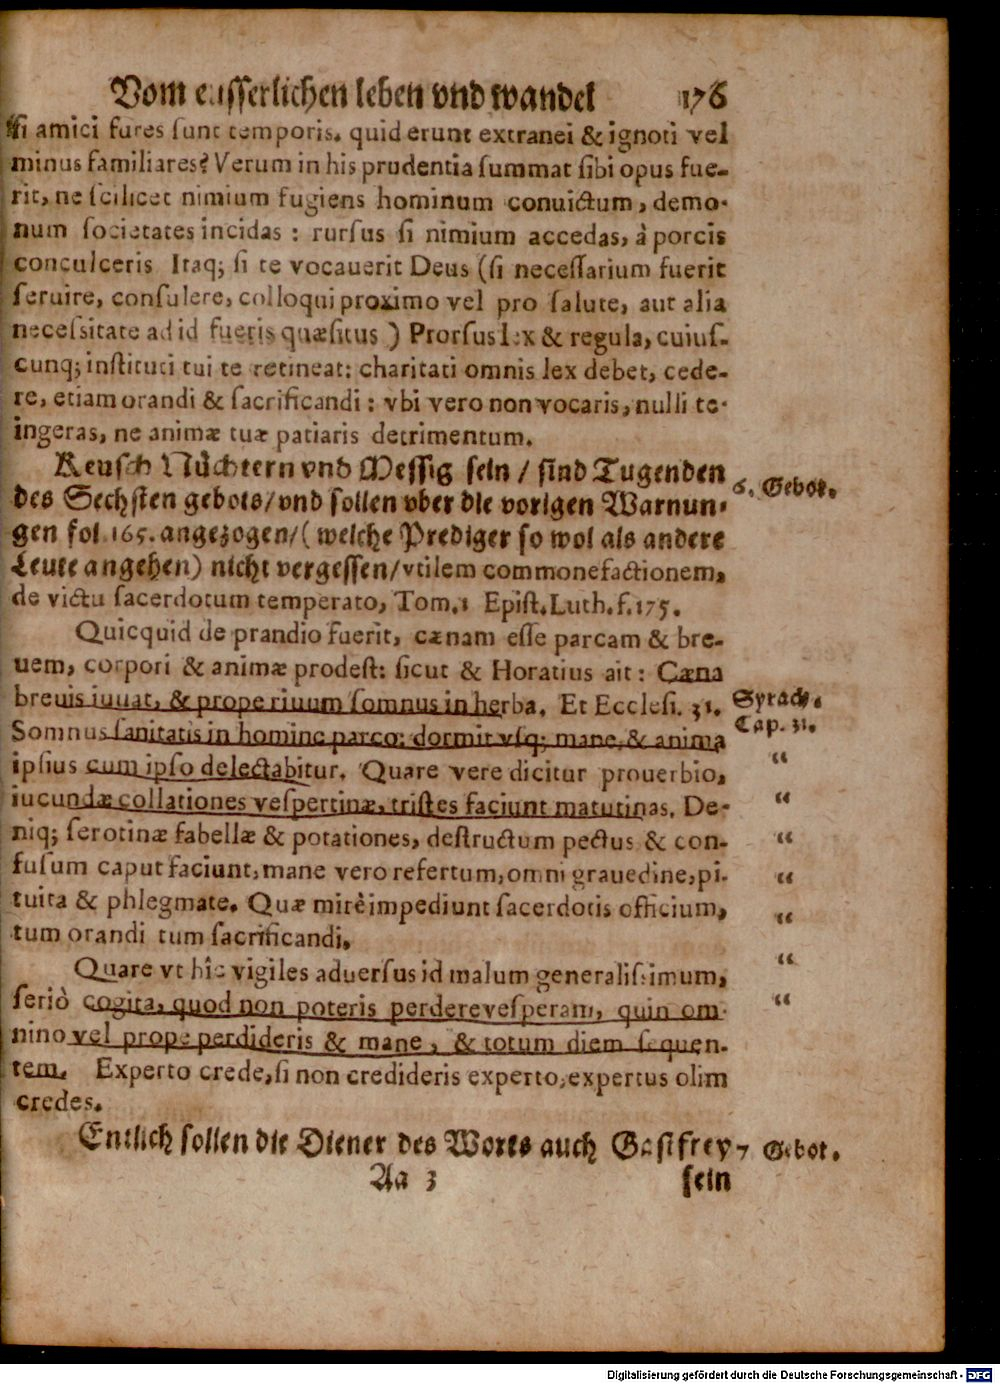 Vom eusserlichen leben vnd wandel 176
si amici fures sunt temporis. quid erunt extranei & ignoti vel
minus familiares? Verum in his prudentia summat sibi opus fue-
rit, ne scilicet nimium fugiens hominum conuictum, demo-
num societates incidas : rursus si nimium accedas, à porcis
conculceris Itaq; si te vocauerit Deus (si necessarium fuerit
seruire, consulere, colloqui proximo vel pro salute, aut alia
necessitate ad id fueris quæsitus ) Prorsus lex & regula, cuius-
cunq; instituti tui te retineat: charitati omnis lex debet, cede-
re, etiam orandi & sacrificandi : vbi vero non vocaris, nulli te-
ingeras, ne animæ tuæ patiaris detrimentum.
Keusch Nüchtern vnd Messig sein / sind Tugenden
des Sechsten gebots/vnd sollen vber die vorigen Warnun- 6. Gebot.
gen fol 165. angezogen/( welche Prediger so wol als andere
Leute angehen) nicht vergessen/vtilem commonefactionem,
de victu sacerdotum temperato, Tom.1 Epist.Luth.f.175.
Quicquid de prandio fuerit, cænam esse parcam & bre-
uem, corpori & animæ prodest: sicut & Horatius ait : Cæna
breuis iuuat, & prope riuum somnus in herba. Et Ecclesi. 31. Syrach.
Somnus sanitatis in homine parco: dormit vsq; mane, & anima Cap. 31.
ipsius cum ipso delectabitur. Quare vere dicitur prouerbio, “
iucundæ collationes vespertinæ, tristes faciunt matutinas. De- “
niq; serotinæ fabellæ & potationes, destructum pectus & con- “
fusum caput faciunt, mane vero refertum, omni grauedine, pi- “
tuita & phlegmate. Quæ mirè impediunt sacerdotis officium, “
tum orandi tum sacrificandi. “
Quare vt hic vigiles aduersus id malum generalissimum,
seriò cogita, quod non poteris perdere vesperam, quin om- “
nino vel prope perdideris & mane, & totum diem sequen-
tem. Experto crede, si non credideris experto, expertus olim
credes.
Entlich sollen die Diener des Worts auch Gastfrey 7 Gebot.
Aa 3 sein
Digitalisierung gefördert durch die Deutsche Forschungsgemeinschaft - DFG